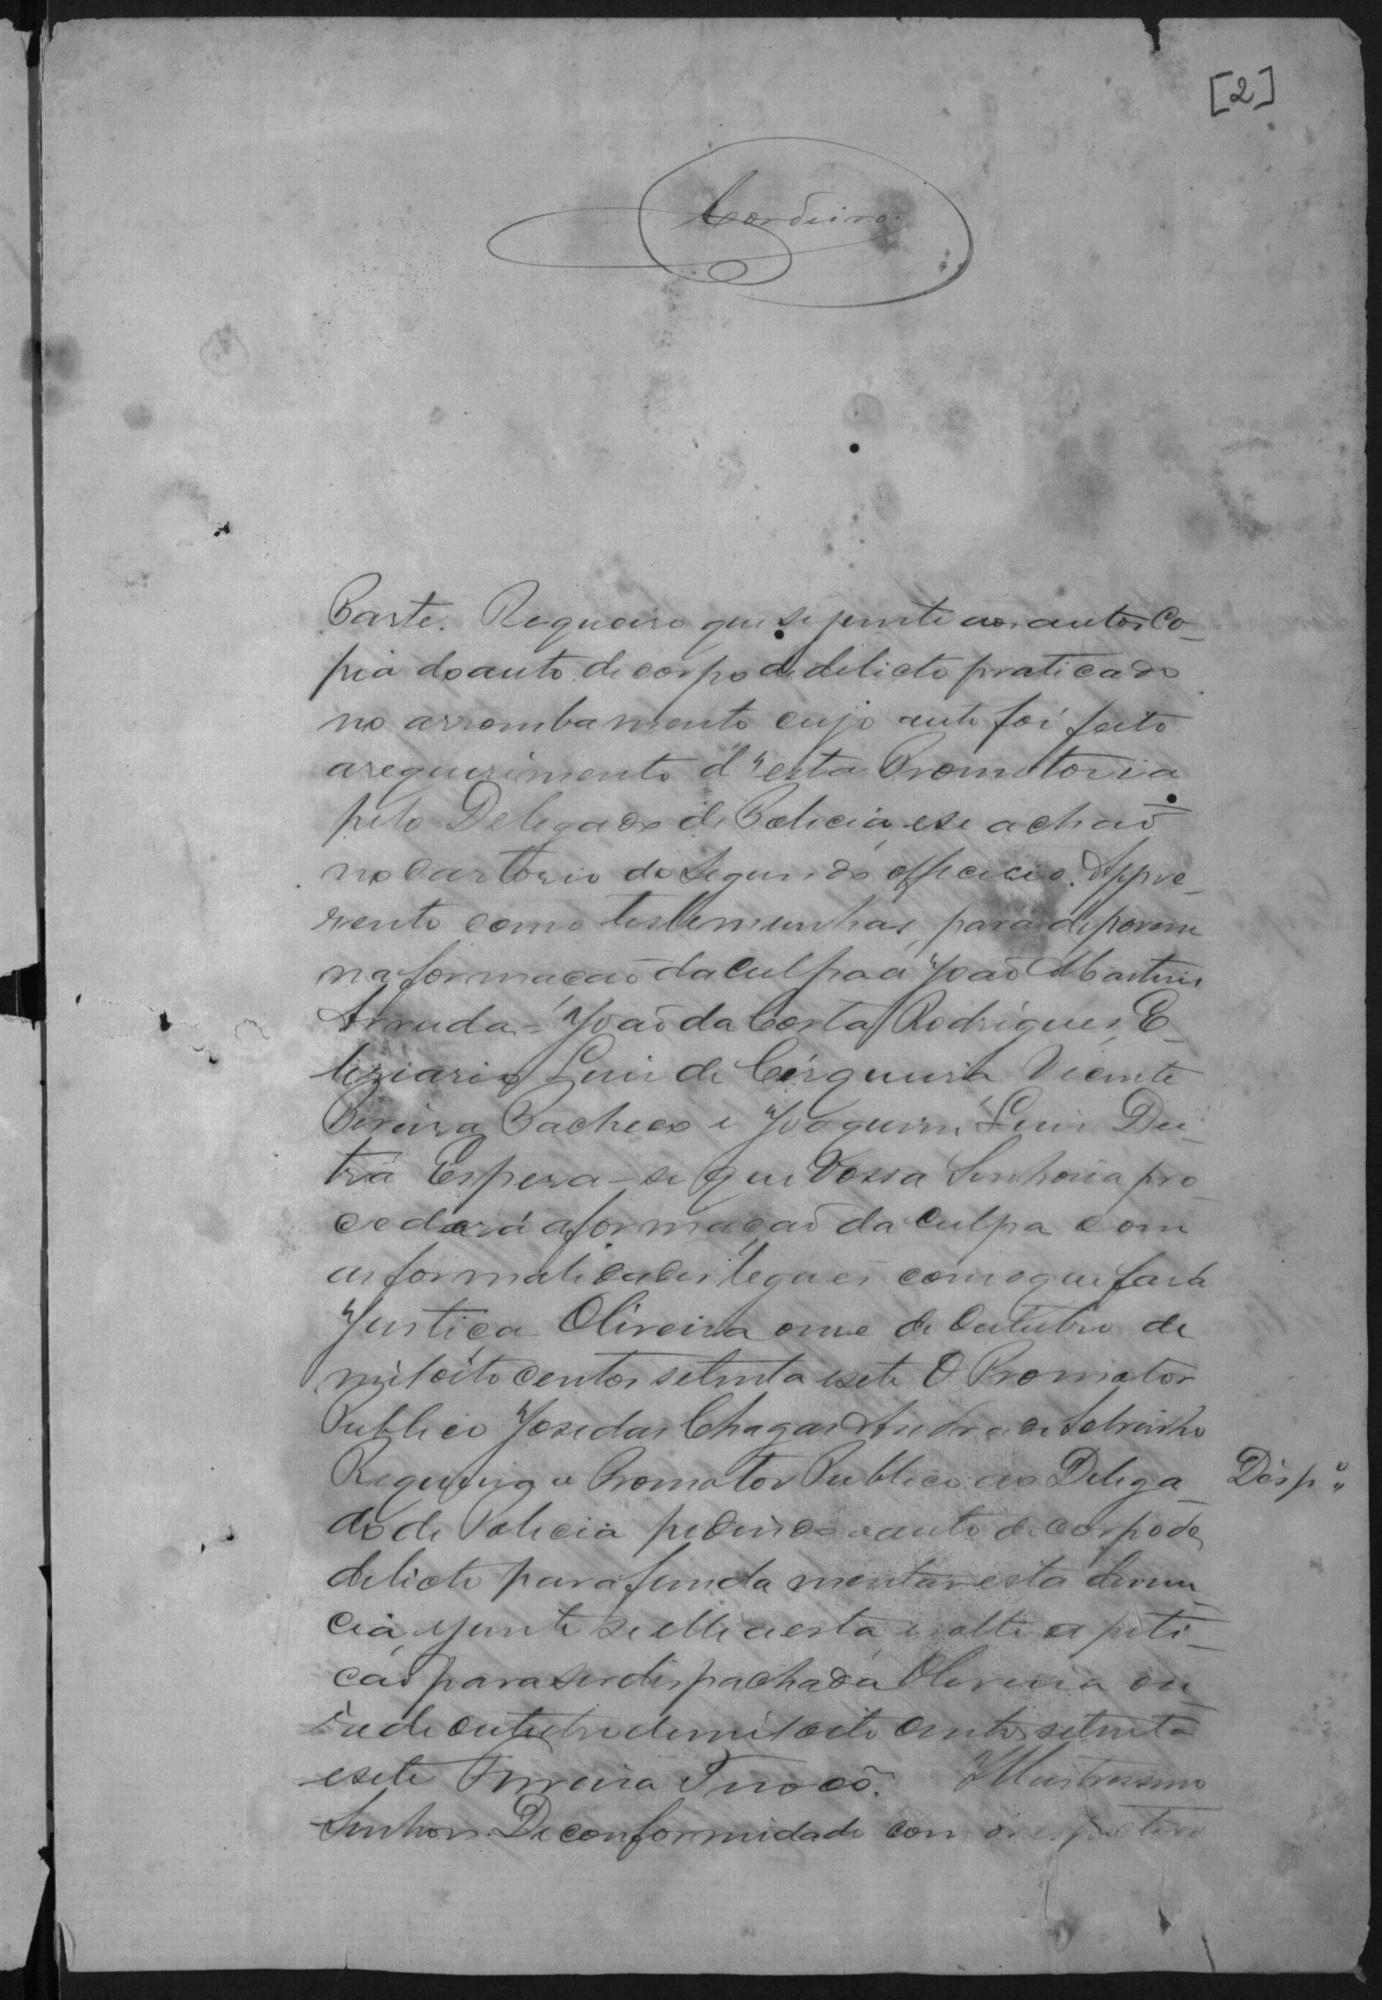 [2]
Cordeiro
Parte. Requeiro que se junte aos autos Co-
pia do auto de corpo de delicto praticado
no arrombamento cujo auto foi feito
a requirimento d'esta Promotoria
pelo Delegado de Policia, e se achaõ
no cartorio do Segundo officcio. Appre-
zento como testemunhas, para deporem
na formacaõ da culpa á Joaõ Martins
Arruda = Joaõ da Costa Rodrigues, E-
liziario Luis de Cerqueira Vicente
Pereira Pacheco e Joaquim Luis Du-
tra Espera-se que Vossa Senhoria pro-
cederá a formaçaõ da culpa com
as formalidades legaes com o que fará
Justiça Oliveira onse de Outubro de
mil oito centos setenta e sete O Promotor
Publico Jose das Chagas Andrade Sobrinho
Requeira o Promotor Publico ao Delega-
do de Policia pedindo o auto de corpo de
delicto para fundamentar esta denun-
cia, e junte se elle a esta e volte a peti-
cão para ser dispachada Oliveira on-
ze de outubro de mil oito centos setenta
e sete Ferreira Tinocô. Illustrissimo
Senhor. De conformidade com o
Desp.º